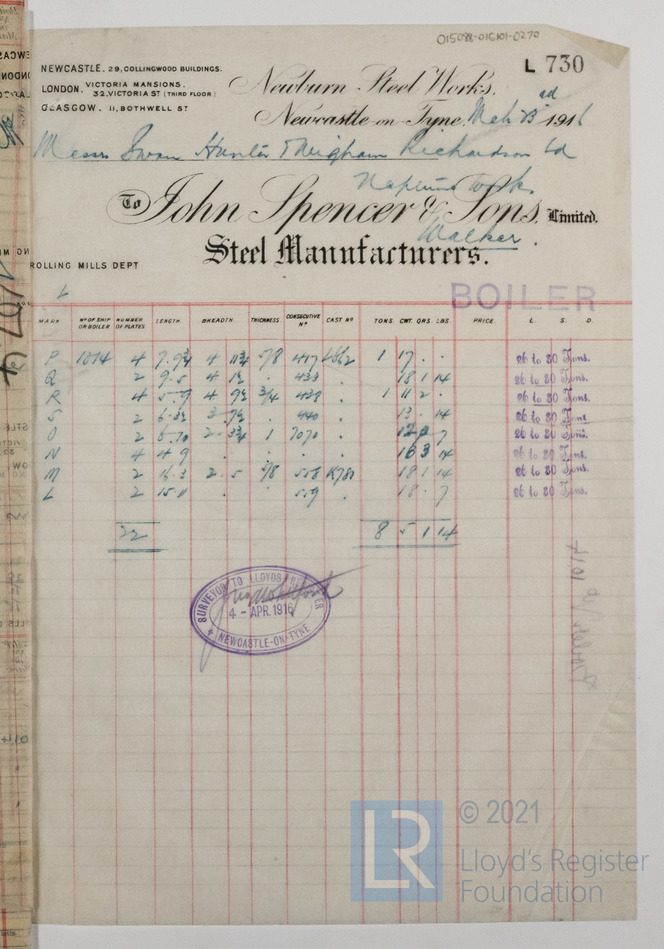 015088-016101-0270
L 730
NEWCASTLE. 29, COLLINGWOOD BUILDINGS.
LONDON. VICTORIA MANSIONS. 32, VICTORIA ST (THIRD FLOOR)
GLASGOW. 11, BOTHWELL ST
Newburn Steel Works,
Newcastle on Tyne, Mch 23rd 1916
Messrs Swan Hunter & Wigham Richardson Ld
Neptune Works
Walker.
To John Spencer & Sons, Limited.
Steel Manufacturers.
ROLLING MILLS DEPT
BOILER
MARK Nº OF SHIP OR BOILER NUMBER OF PLATES LENGTH BREADTH THICKNESS CONSECUTIVE Nº CAST Nº TONS. CWT. QRS. LBS. PRICE. £. S. D.
P 1014 4 7.9¾ 4 11¾ 5/8 417 1 17 . . 26 to 30 Tons.
Q 2 9.5 4 1½ . 433 . 18 1 14 26 to 30 Tons.
R 4 5.9 4 9½ ¾ 438 . 1 11 2 . 26 to 30 Tons.
S 2 3 7½ . 440 . 13 . 14 26 to 30 Tons.
O 2 2.3¾ 1 7070 . 7 26 to 30 Tons.
N 4 4 9 . . . . 16 3 14 26 to 30 Tons.
M 2 16.3 2.5 5/8 558 K781 18 1 14 26 to 30 Tons.
L 2 15.11 . . 559 . 18 . 7 26 to 30 Tons.
22 8 5 1 14
SURVEYOR TO LLOYDS REGISTER
4 - APR. 1916
NEWCASTLE-ON-TYNE
© 2021
LR Lloyd's Register
Foundation